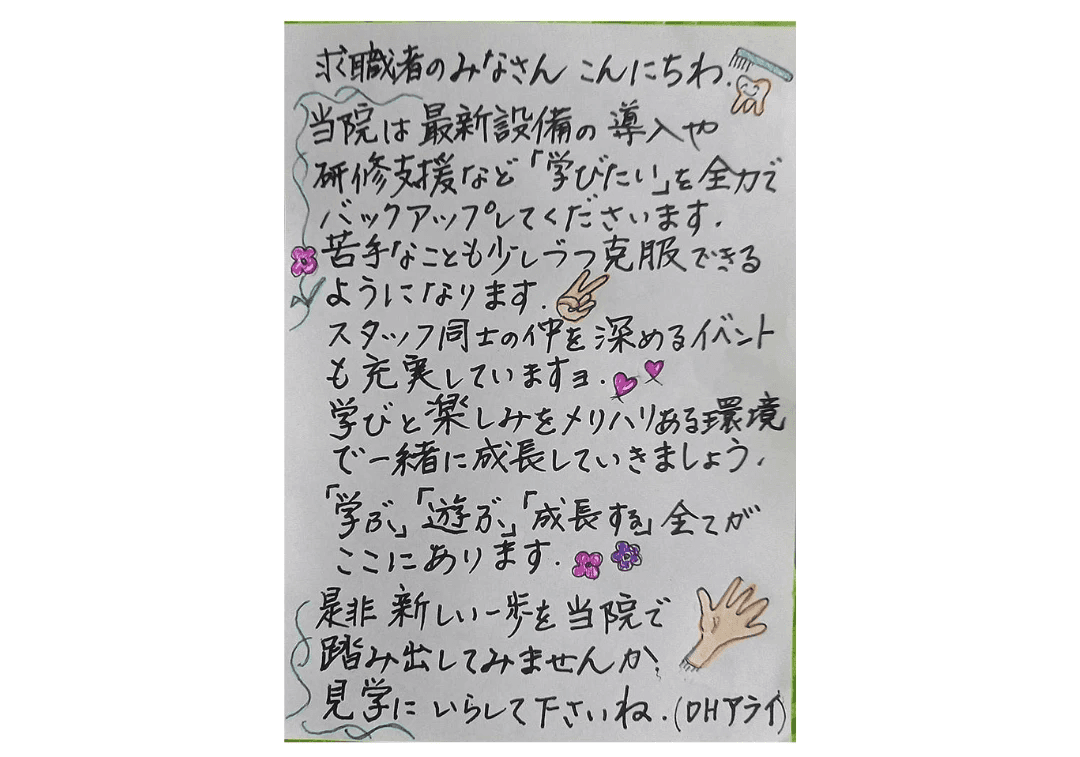 求職者のみなさん こんにちわ.
当院は最新設備の導入や
研修支援など「学びたい」を全力で
バックアップしてくださいます.
苦手なことも少しづつ克服できる
ようになります.
スタッフ同士の仲を深めるイベント
も充実していますヨ.
学びと楽しみをメリハリある環境
で一緒に成長していきましょう.
「学ぶ」「遊ぶ」「成長する」全てが
ここにあります.
是非新しい一歩を当院で
踏み出してみませんか?
見学にいらして下さいね.(DHアライ)